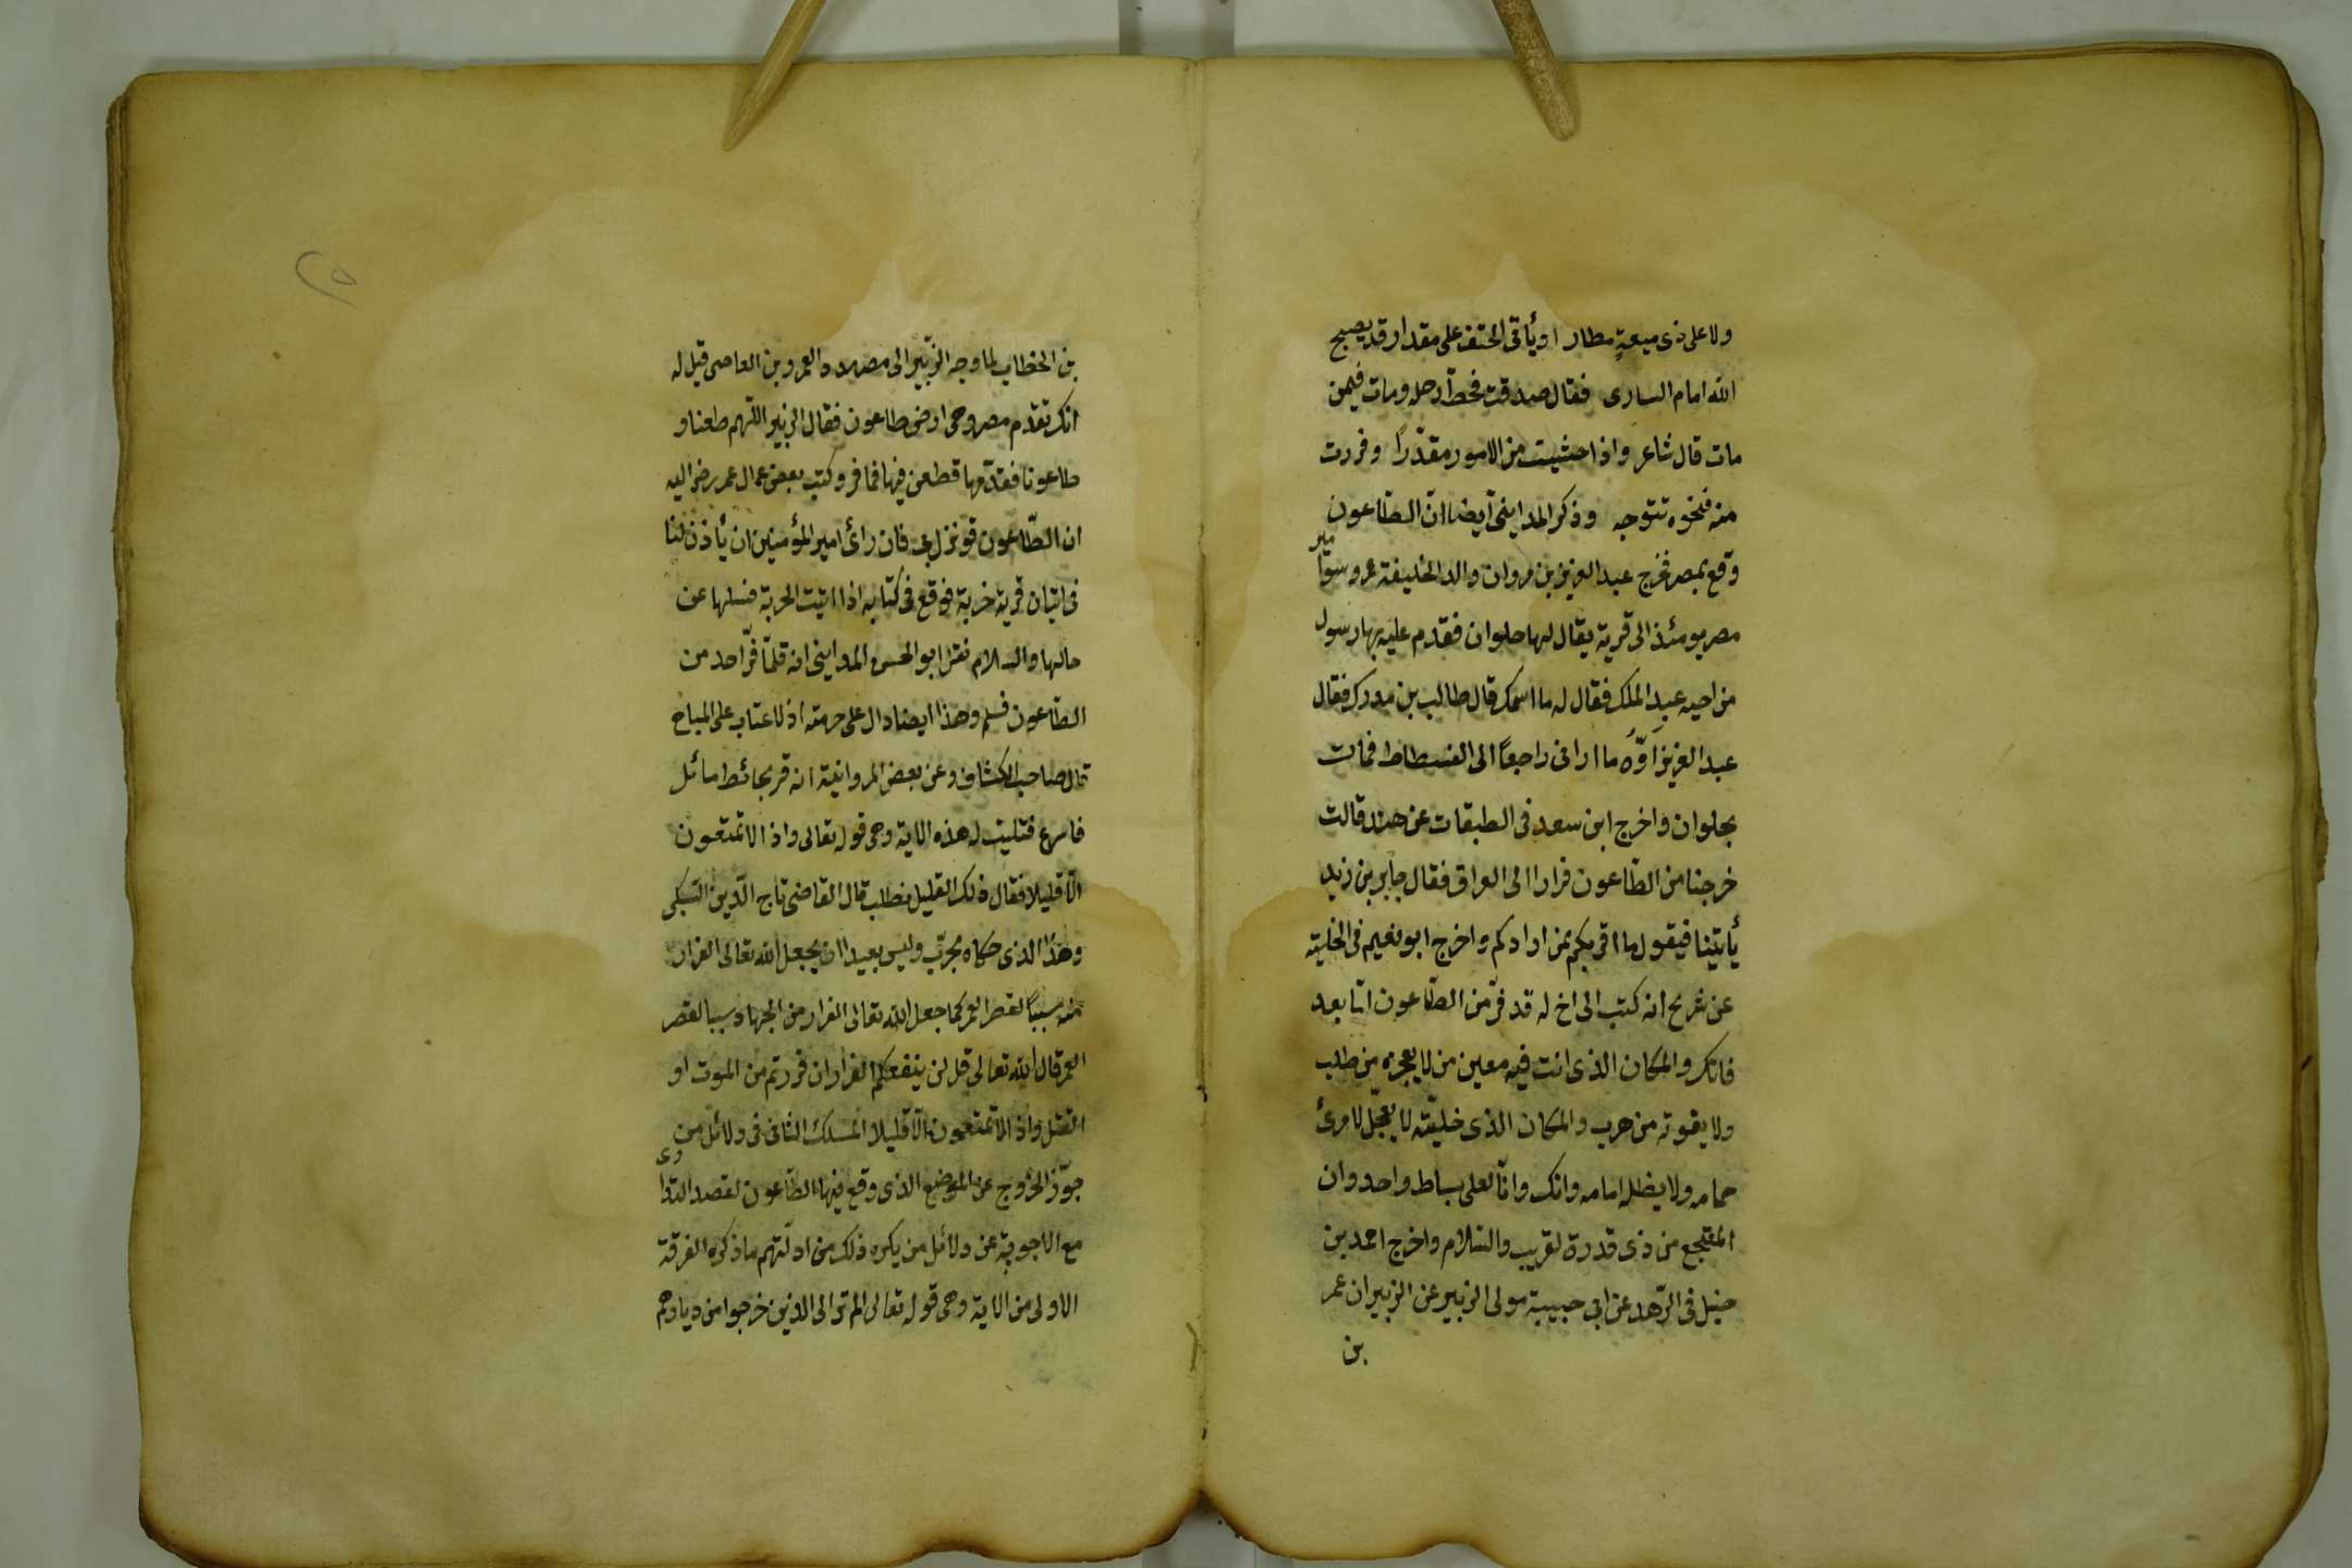 ولا على ذى ميعةٍ مطار او يأتى الحتف على مقدار قد يصبح
الله امام السارى فقال صدقت فحطّ رحله ومات فيمن
مات قال شاعر واذا خشيت من الامور مقدّرا وفررت
منه فنحوه تتوجه وذكر المداينى أيضا انّ الطّاعون
وقع بمصر فخرج عبد العزيز بن مروان والد الخليفة عمر وسوا مير
مصر يومئذ الى قرية يقال لها حلوان فقدم عليه بها رسول
من اخيه عبد الملك فقال له ما اسمك قال طالب بن مدرك فقال
عبد العزيز اوّه ما ارانى راجعا الى الفسطاط فمات
بحلوان واخرج ابن سعد فى الطبقات عن هند قالت
خرجنا من الطّاعون فرارا الى العراق فقال جابر بن زيد
يأتينا فيقول ما اقربكم ممن ارادكم واخرج ابو نعيم فى الحلية
عن شريح انه كتب الى اخ له قد فرّ من الطّاعون امّا بعد
فانك والمكان الذى انت فيه معين من لا يعجزه من طلب
ولا يفوته من هرب والمكان الذى خليّته لا يعجّل لامرئ
حمامه ولا يضلله امامه وانك وانّا لعلى بساط واحد وان
المنتجع من ذى قدرة لقريب والسّلام واخرج احمد بن
حنبل فى الزّهد عن ابى حبيبة مولى الزبير عن الزبير ان عمر
بن
٢٥
بن الخطاب لما وجه الزّبير الى مصر مددا لعمرو بن العاصى قيل له
انك تقدم مصر وهى ارض طاعون فقال الزبير اللّهم طعنا و
طاعونا فقدّمها فطعن فيها فما فر وكتب بعض عمال عمر رض اليه
ان الطّاعون قد نزل بنا فان رأى امير المؤمنين ان يأذن لنا
فى اتيان قرية خربة فوقع فى كتابه اذا اتيت الخربة فسلها عن
حالها والسلام نقل ابو الحسن المداينى انه قلّما فرّ احد من
الطّاعون فسلم وهذا ايضا دال على حرمته اذ لا عتاب على المباح
قال صاحب الكشاف وعن بعض المروانية انه مر بحائط مائل
فاسرع فتليت له هذه الاية وهى قوله تعالى واذا لا تمتعون
الّا قليلا فقال ذلك القليل نطلب قال القاضى تاج الدّين السّبكى
وهذا الذى حكاه مجرّب وليس بعيدا ان يجعل الله تعالى الفرار
منه سببا لقصر العمر كما جعل الله تعالى الفرار من الجهاد سببا لقصر
العمر قال الله تعالى قل لن ينفعكم الفرار ان فررتم من الموت او
القتل واذا لا تمتعون الّا قليلا المسلك الثانى فى دلائل من
جوّز الخروج عن الموضع الذى وقع فيها الطّاعون لقصد التدا وى
مع الاجوبة عن دلائل من يكره ذلك من ادلّتهم ما ذكره الفرقة
الاولى من الاية وهى قوله تعالى الم تر الى الذين خرجوا من ديارهم